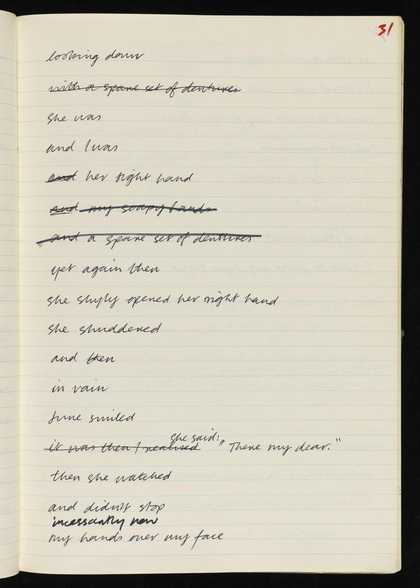 31
looking down
with a spare set of dentures
she was
and I was
and her right hand
and my soapy hands
and a spare set of dentures
yet again then
she slyly opened her right hand
she shuddered
and then
in vain
June smiled
she said:
it was then I realised "There my dear."
then she watched
and didn't stop
incessantly now
my hands over my face